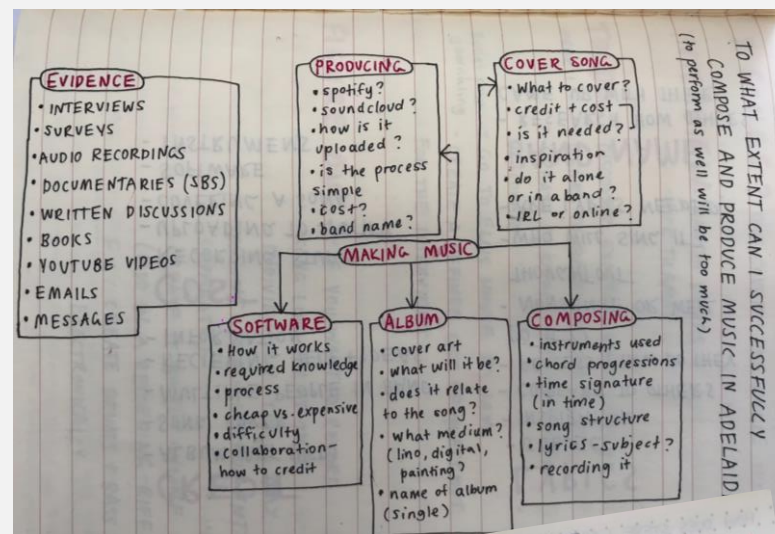 TO WHAT EXTENT CAN I SUCCESSFULLY
COMPOSE AND PRODUCE MUSIC IN ADELAID
(to perform as well will be too much)
EVIDENCE
• INTERVIEWS
• SURVEYS
• AUDIO RECORDINGS
• DOCUMENTARIES (SBS)
• WRITTEN DISCUSSIONS
• BOOKS
• YOUTUBE VIDEOS
• EMAILS
• MESSAGES
PRODUCING
• spotify?
• soundcloud?
• how is it
uploaded?
• is the process
simple
• cost?
• band name?
COVER SONG
• What to cover?
• credit + cost
• is it needed?
• inspiration
• do it alone
or in a band?
• IRL or online?
MAKING MUSIC
SOFTWARE
• How it works
• required knowledge
• process
• cheap vs. expensive
• difficulty
• collaboration-
how to credit
ALBUM
• cover art
• what will it be?
• does it relate
to the song?
• what medium?
(lino, digital,
painting?
• name of album
(single)
COMPOSING
• instruments used
• chord progressions
• time signature
(in time)
• song structure
• lyrics - subject?
• recording it